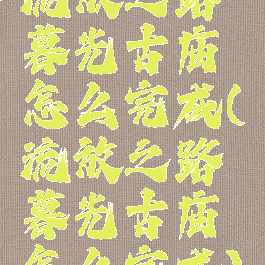 流放之路
暮光古庙
怎么完成(
流放之路
暮光古庙
怎么完成)